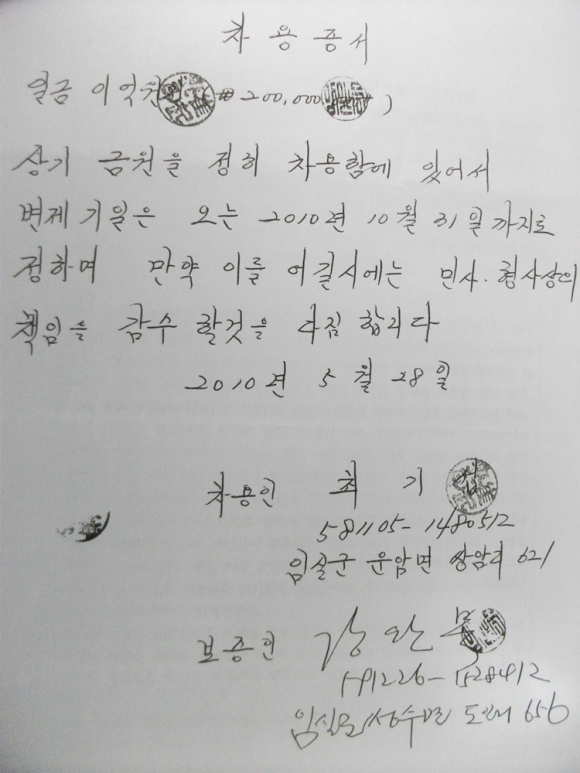 차용증서
일금 이억원 (₩200,000)
상기 금원을 정히 차용함에 있어서
변제 기일은 오는 2010년 10월 31일 까지로
정하며 만약 이를 어길시에는 민사.형사상의
책임을 감수 할것을 다짐 합니다
2010년 5월 28일
차용인 최 기
581105-1480512
임실군 운암면 쌍암리 621
보증인 강완묵
591226-1528412
임실군 성수면 도인리 656